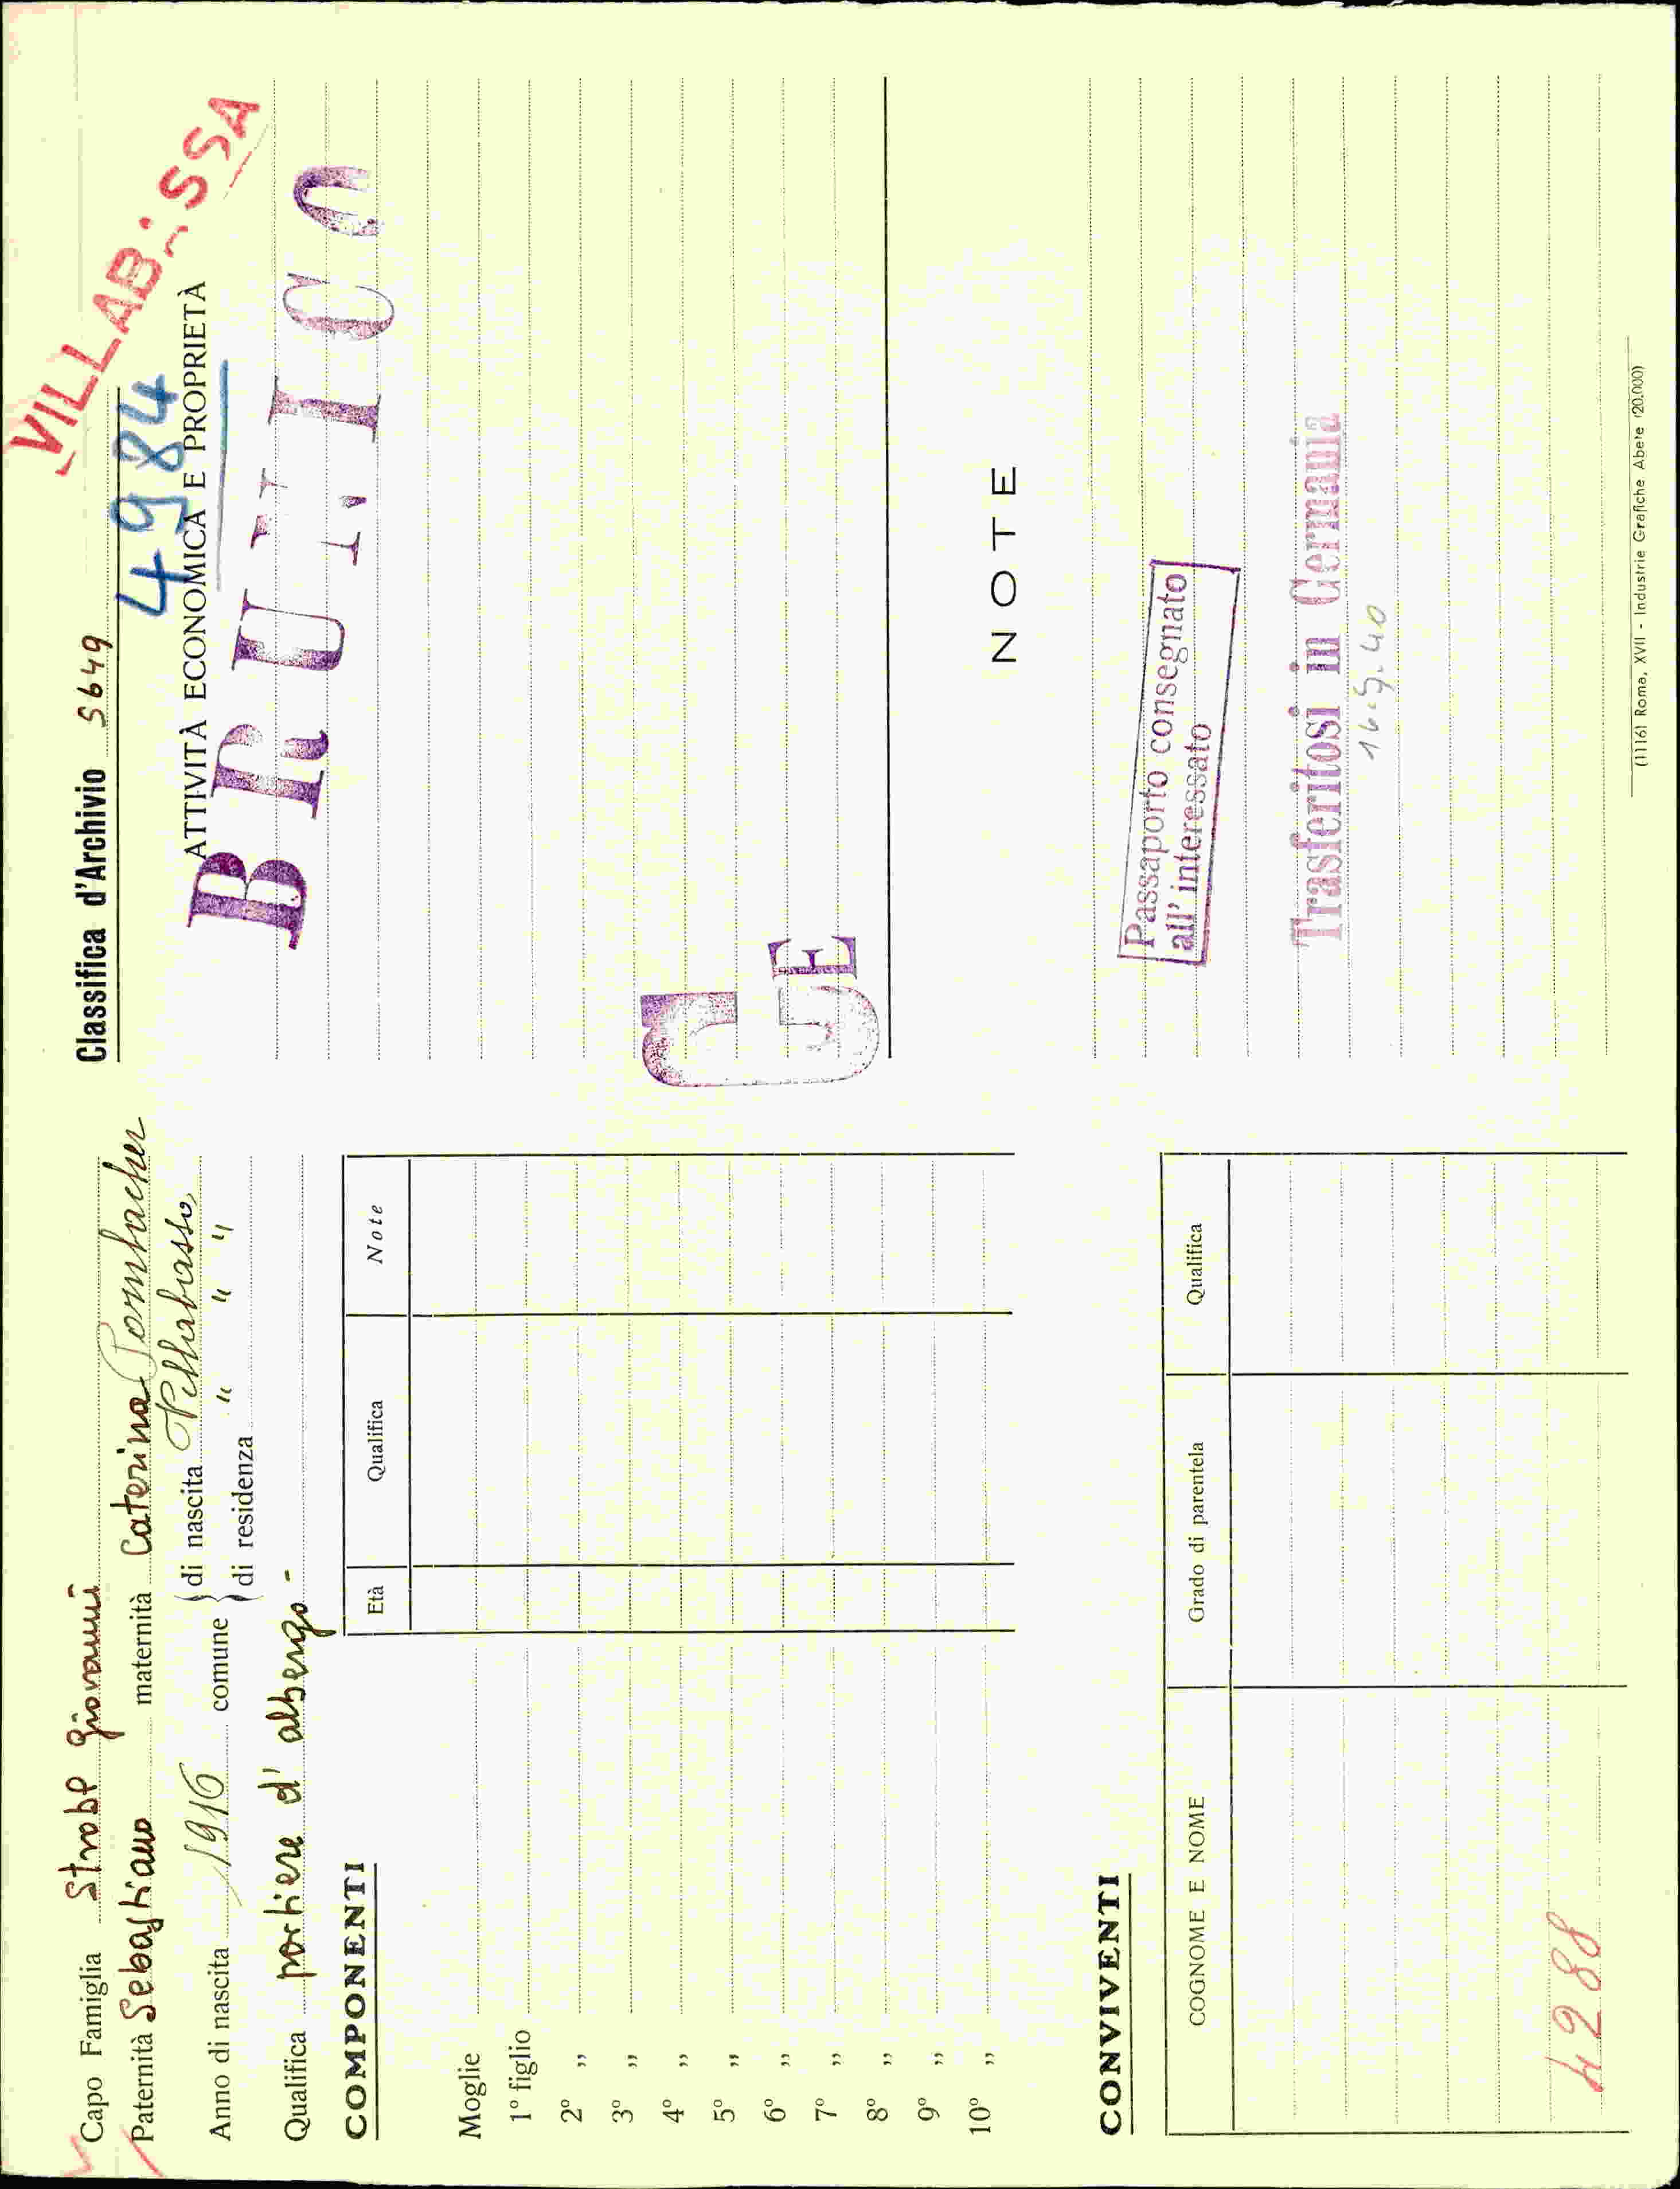 Capo Famiglia Strobl Giovanni
Paternità Sebastiano maternità Caterina
Anno di nascita 1916 comune { di nascita Villabassa
} di residenza " " "
Qualifica portiere d'albergo -
COMPONENTI
Età Qualifica Note
Moglie
1º figlio
2º „
3º „
4º „
5º „
6º „
7º „
8º „
9º „
10º „
CONVIVENTI
COGNOME E NOME Grado di parentela Qualifica
4288
VILLABASSA
Classifica d'Archivio 5649
4984
ATTIVITÀ ECONOMICA E PROPRIETÀ
BRUNICO
GE
NOTE
Passaporto consegnato
all' interessato
Trasferitosi in Germania
16.9.40
(1116) Roma, XVII - Industrie Grafiche Abete (20.000)